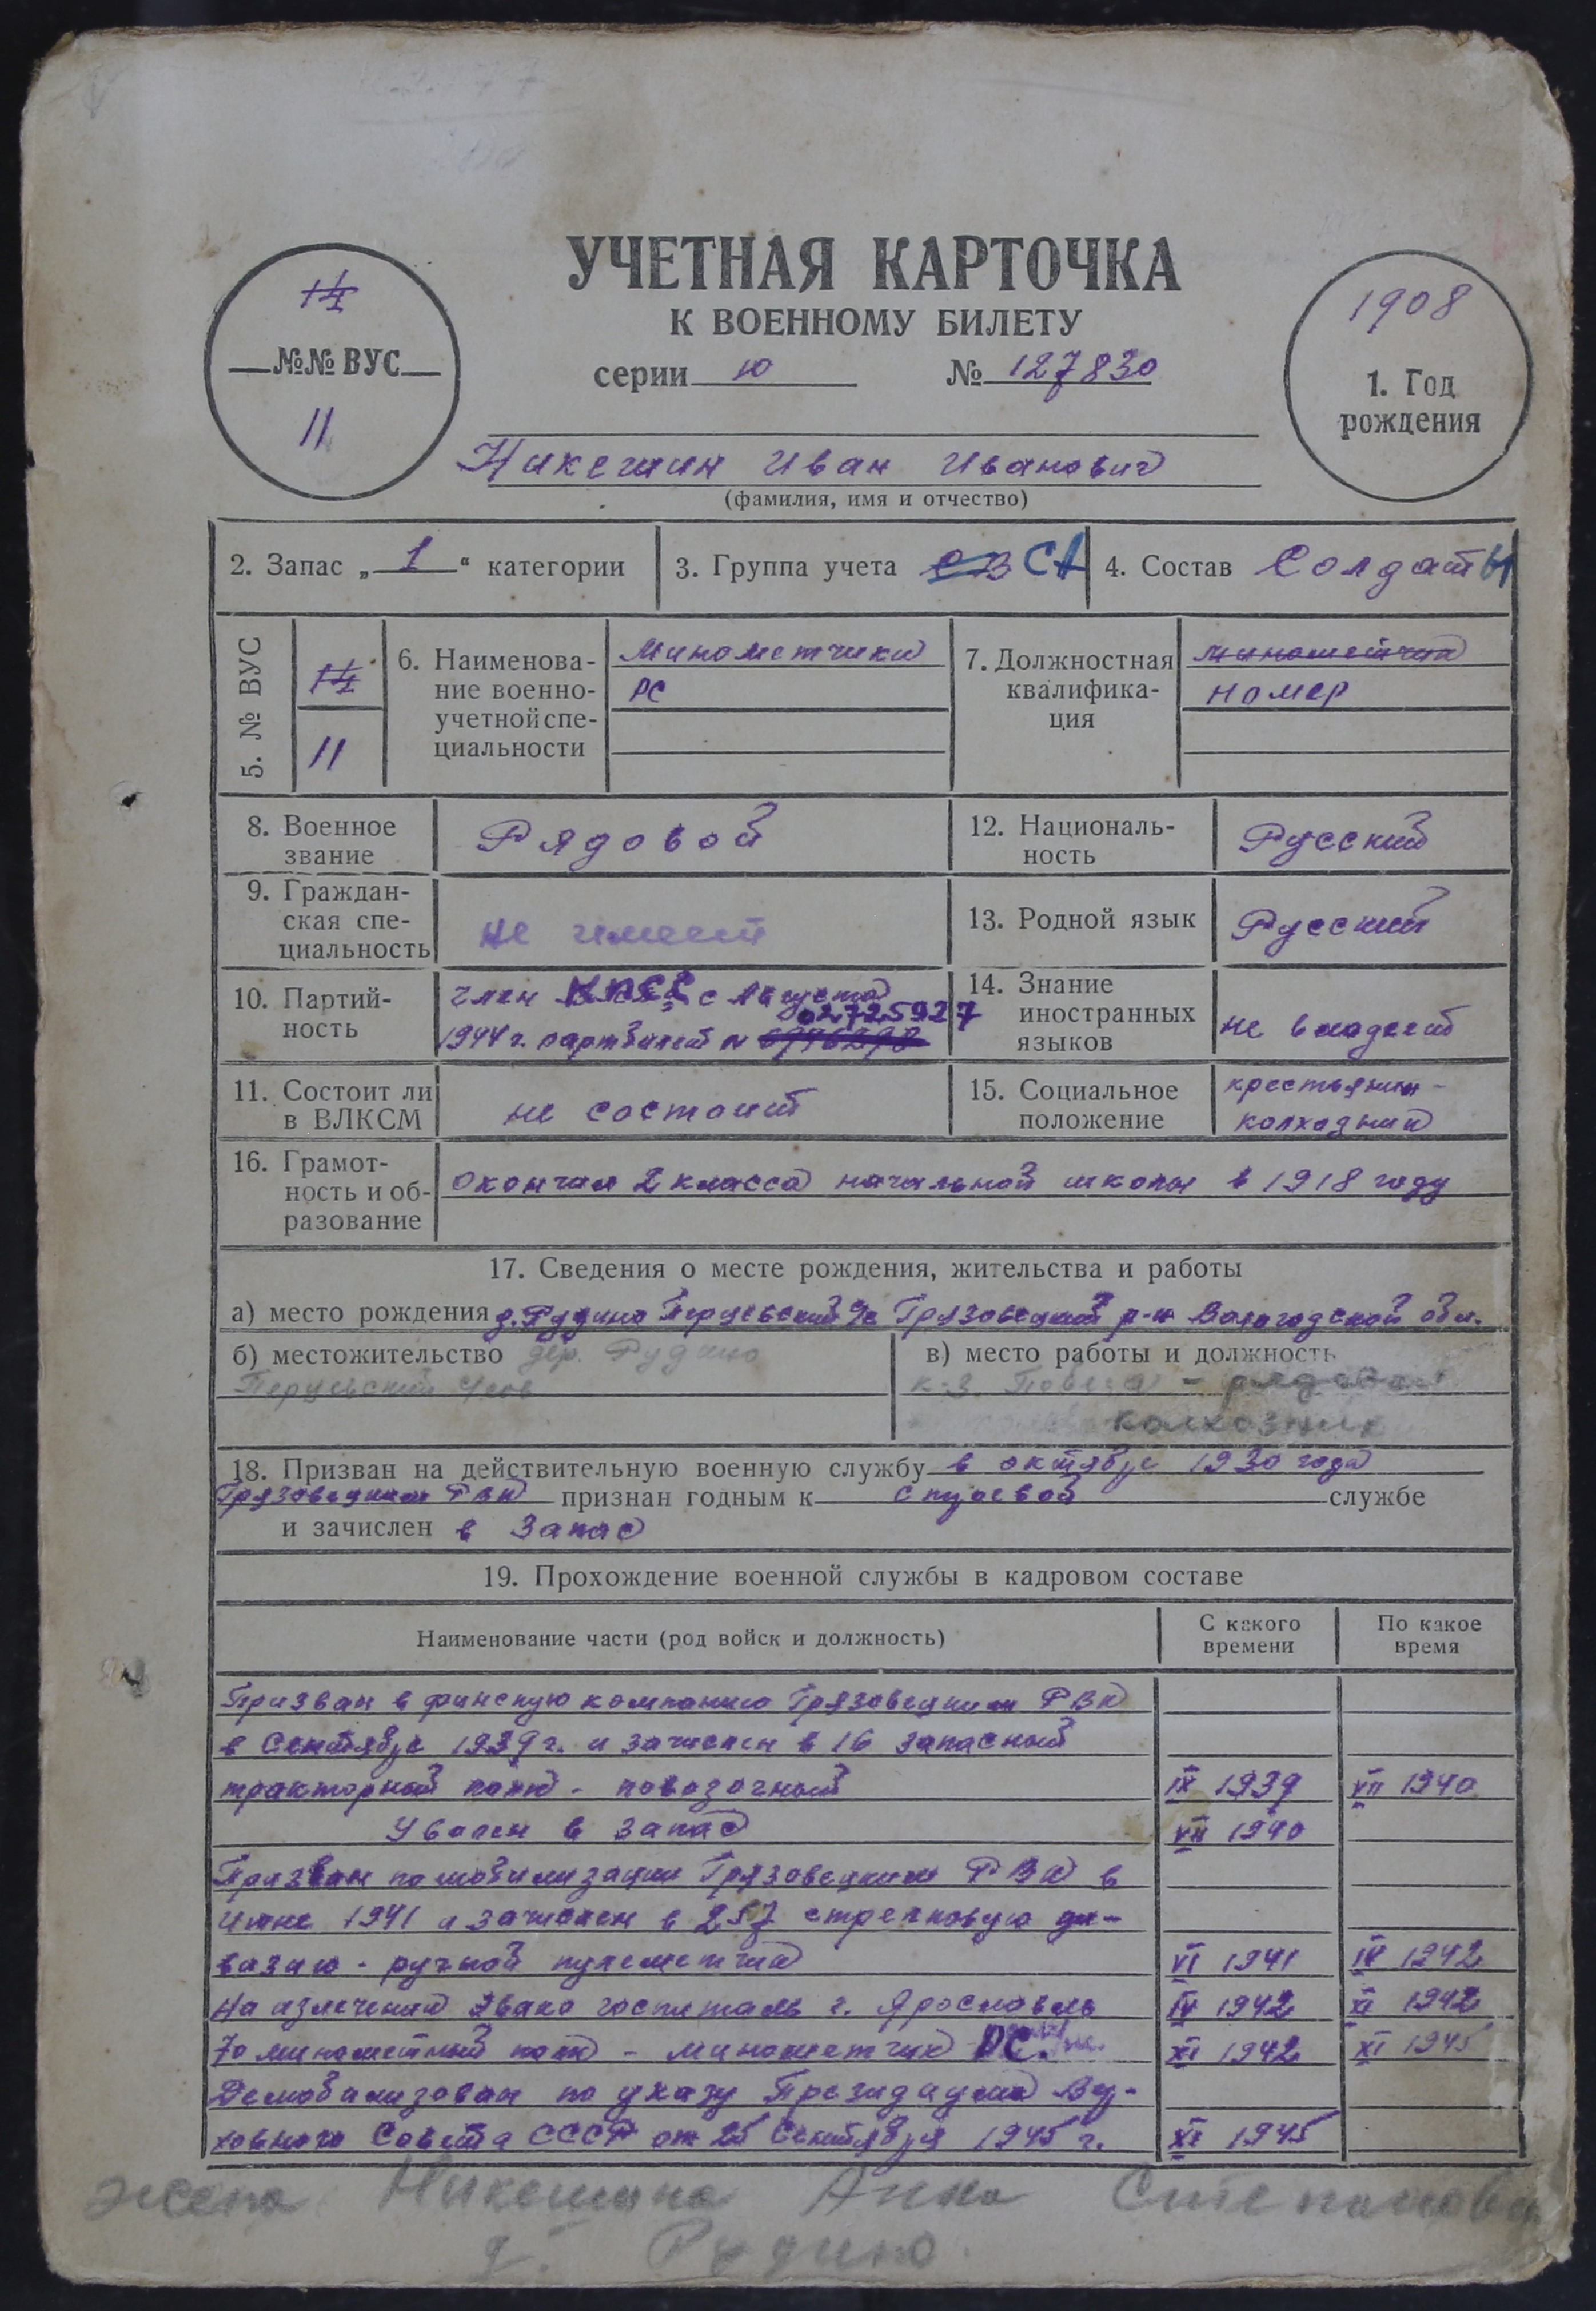 УЧЕТНАЯ КАРТОЧКА
К ВОЕННОМУ БИЛЕТУ
серии Ю № 127830
14
№№ ВУС
11
1908
1. Год
рождения
Никешин Иван Иванович
(фамилия, имя и отчество)
2. Запас „ 1 “ категории
3. Группа учета СВ СА
4. Состав Солдаты
5. № ВУС
14
11
6. Наименова-
ние военно-
учетной спе-
циальности
Минометчики
РС
7. Должностная
квалифика-
ция
минометчик
номер
8. Военное
звание
Рядовой
12. Националь-
ность
Русский
9. Граждан-
ская спе-
циальность
не имеет
13. Родной язык
Русский
10. Партий-
ность
член КПСС с Августа
02725927
1944 г. партбилет №
14. Знание
иностранных
языков
не владеет
11. Состоит ли
в ВЛКСМ
не состоит
15. Социальное
положение
крестьянин-
колхозник
16. Грамот-
ность и об-
разование
окончил 2 класса начальной школы в 1918 году
17. Сведения о месте рождения, жительства и работы
а) место рождения д. Рудино Перцевский с/с Грязовецкий р-н Вологодской обл.
б) местожительство дер. Рудино
Перцевский
в) место работы и должность
к-з Победа - рядовой
колхозник
18. Призван на действительную военную службу в октябре 1930 года
Грязовецким РВК признан годным к строевой службе
и зачислен в запас
19. Прохождение военной службы в кадровом составе
Наименование части (род войск и должность)
С какого
времени
По какое
время
Призван в финскую компанию Грязовецким РВК
в Сентябре 1939 г. и зачислен в 16 запасный
тракторный полк - повозочный IX 1939 VII 1940
Уволен в запас VII 1940
Призван по мобилизации Грязовецким РВК в
Июне 1941 и зачислен в 257 стрелковую ди-
визию - ручной пулеметчик VI 1941 IV 1942
На излечении Эвако госпиталь г. Ярославль IV 1942 XI 1942
70 минометный полк - минометчик РС. XI 1942 XI 1945
Демобилизован по указу Президиума Вер-
ховного Совета СССР от 25 Сентября 1945 г. XI 1945
жена Никешина Анна Степановна
д. Рудино